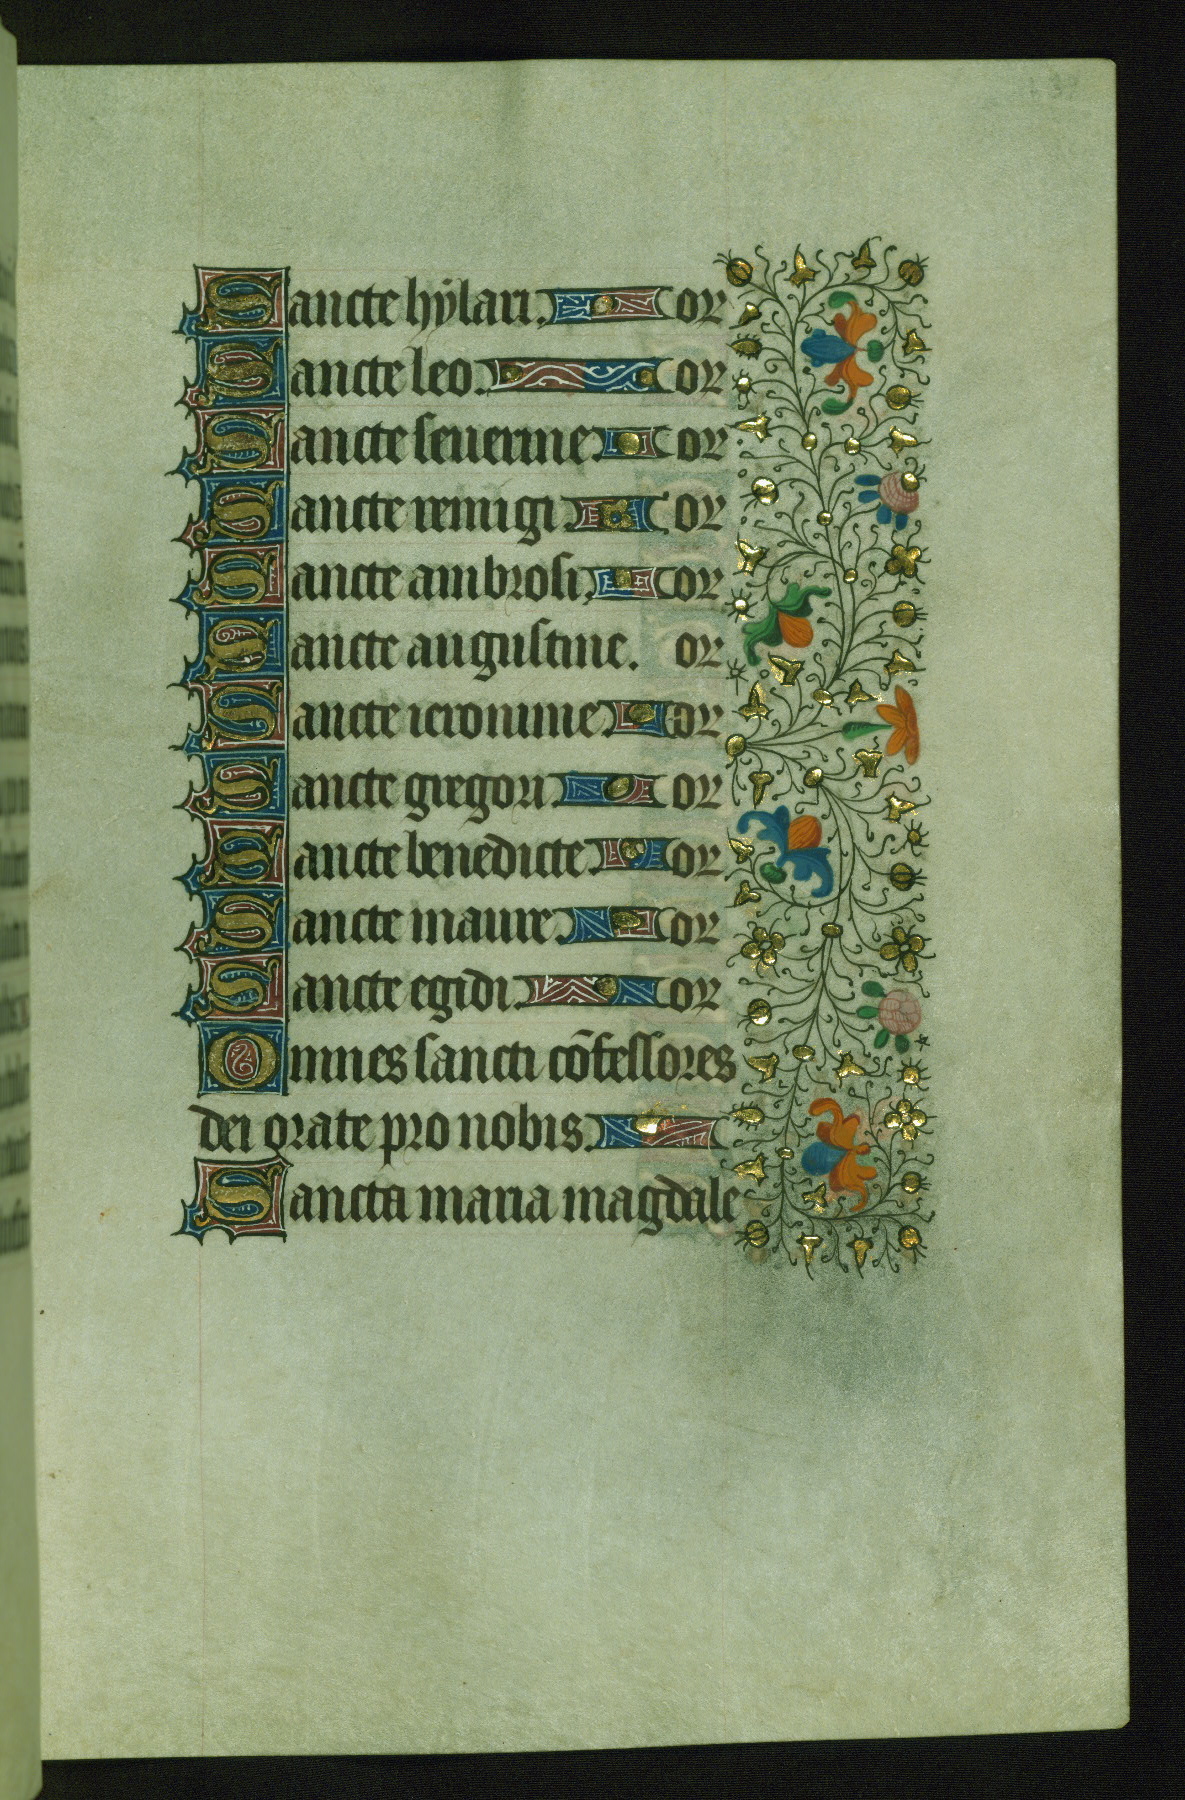 Sancte hÿlari. or
Sancte leo. or
Sancte seuerine or
Sancte remigi or
Sancte ambrosi. or
Sancte augustine. or
Sancte ieronime or
Sancte gregori or
Sancte benedicte or
Sancte maure or
Sancte egidi. or
Omnes sancti cōfessores
dei orate pro nobis.
Sancta maria magdale